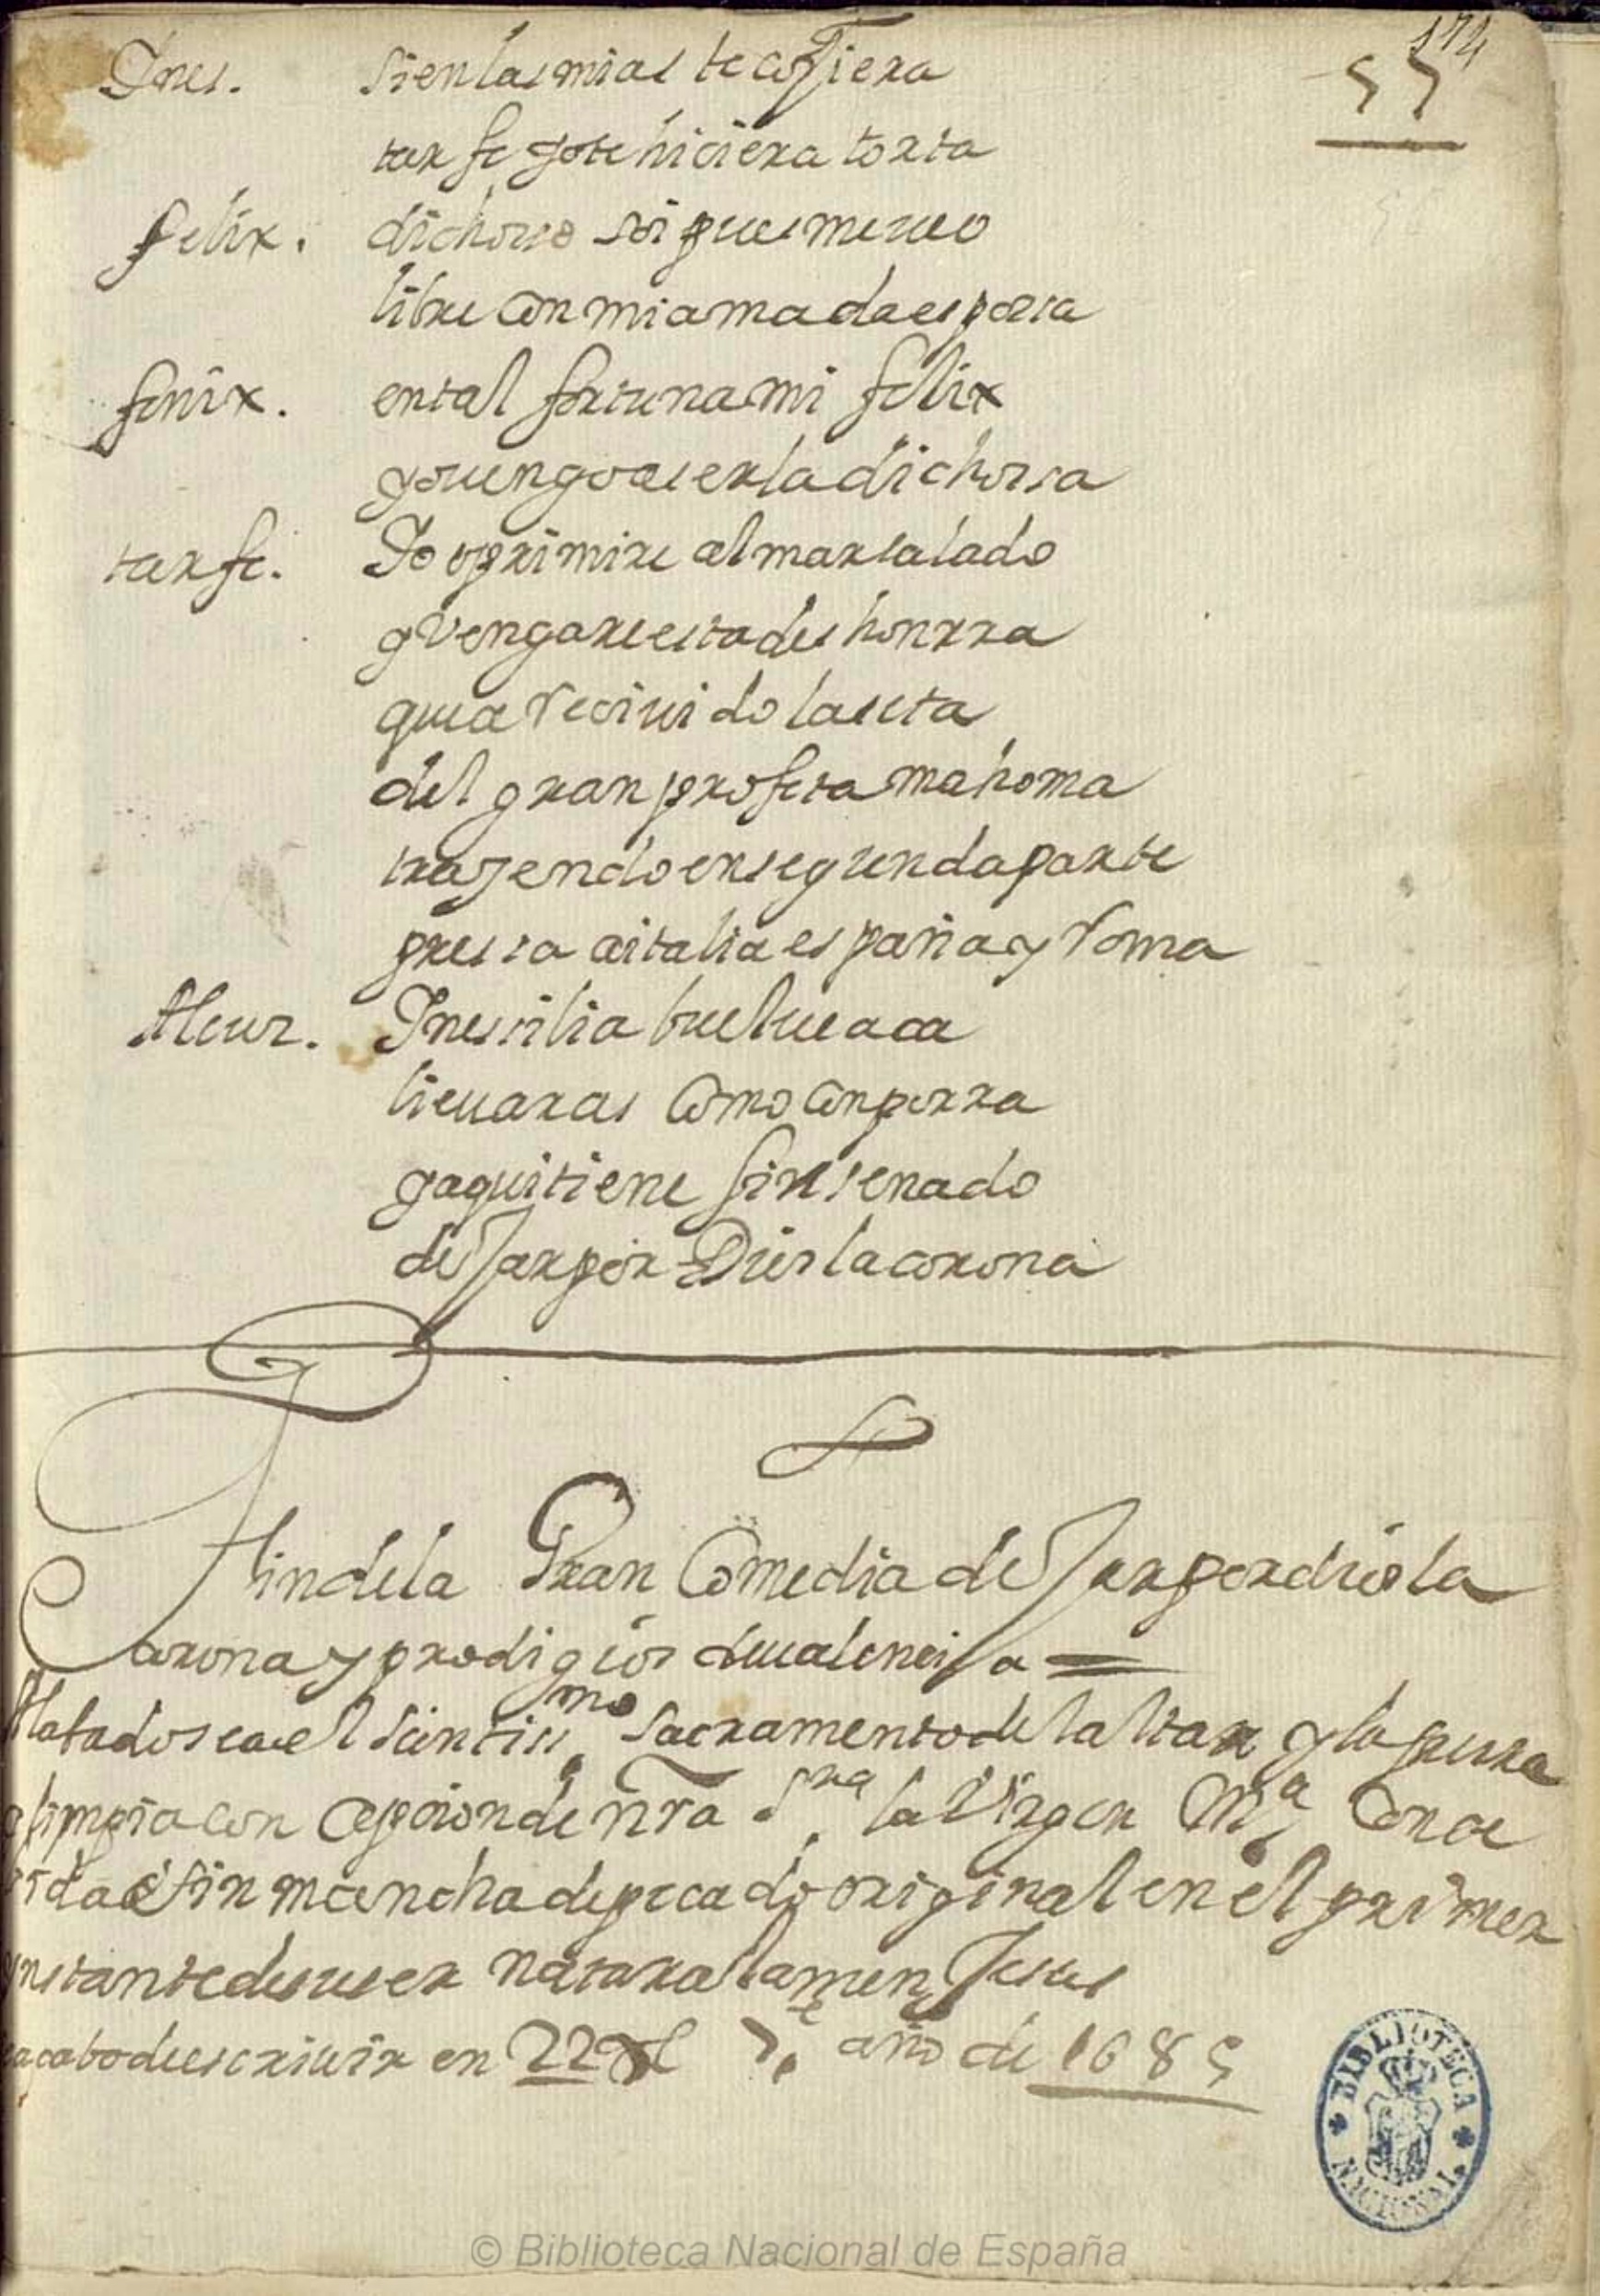 174
55
Ines. si en las mias te cojiera
tarfe yo te hiciera torta
felix. dichoso soi pues me ueo
libre con mi amada esposa
fenix. en tal fortuna mi felix
yo uengo a ser la dichosa
tarfe. Yo oprimire al mar salado
y Vengare esta deshonrra
que a Reciuido la seta
del gran profeta mahoma
trayendo en segunda parte
pressa a italia españa y Roma
Alcuz. Inessilia buelue aca
lieuaras como con porra
y aqui tiene fin senado
dejar por Dios la corona
fin de la Gran Comedia de Jar por dios la
Corona y prodigios de ualencia =
Alabado sea el santisi.mo sacramento del altar y la pura
limpia con cepcion de nra Sra la Virgen Ma Conce
vida sin mancha de pecado original en el primer
ynstante de su ser natural amen Jesus
acabo de escriuir en 22 año de 1685
BIBLIOTECA NACIONAL
© Biblioteca Nacional de España